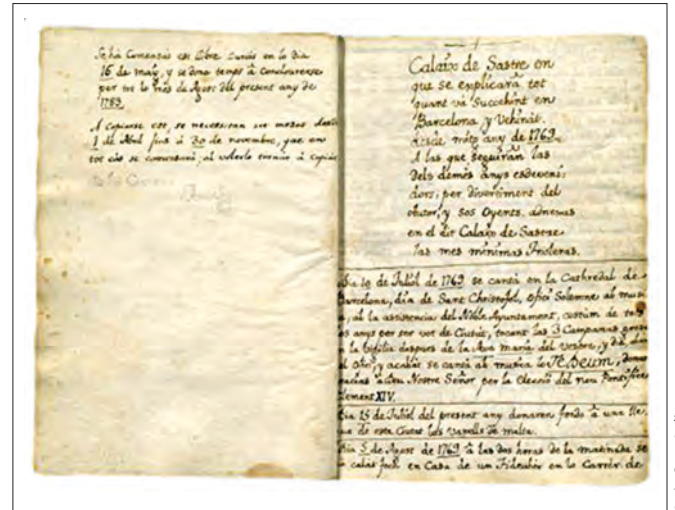 Se ha Comensat est Llibre Curiós en lo Dia
16 de maig, y se dona temps â
per tot lo mes de Agost del present any de
1783.
A Copiarse est, se necessitan set mesos desde
1 de Abril fins â 30 de novembre, que en
tot cas se comensará, al volerlo tornar â Copiar
Calaix de Sastre en
que se explicará tot
quant vá Succehint en
Barcelona, y Vehinât.
desde mitg any de 1769.
A las que seguirán las
dels demés anys esdeveni-
dors; per divertiment del
Autor, y sos Oyents. adnexas
en el dit Calaix de Sastre
las mes mínimas frioleras.
Dia 10 de Juliol de 1769 se cantá en la Cathredal de
Barcelona, dia de Sant Christofol, ofici Solemne ab musi
ab la assistencia del Noble Ajuntament, costúm de
anys per ser vot de Ciutat, tocant las 3 Campanas
la bigilia despues de la Ave maria del Vespre, y dit dia
el ofici, y acabat se cantá ab musica lo TeDeum,
gracias â Deu Nostre Señor per la elecció del nou Pontifice
Clement XIV.
Dia 15 de Juliol del present any donaren fondo â una lle-
gua de esta Ciutat los Vaxells de malta.
Dia 5 de Agost de 1769 â las dos horas de la matinada se
calás foch en Casa de un Fideuhér en lo Carrér de